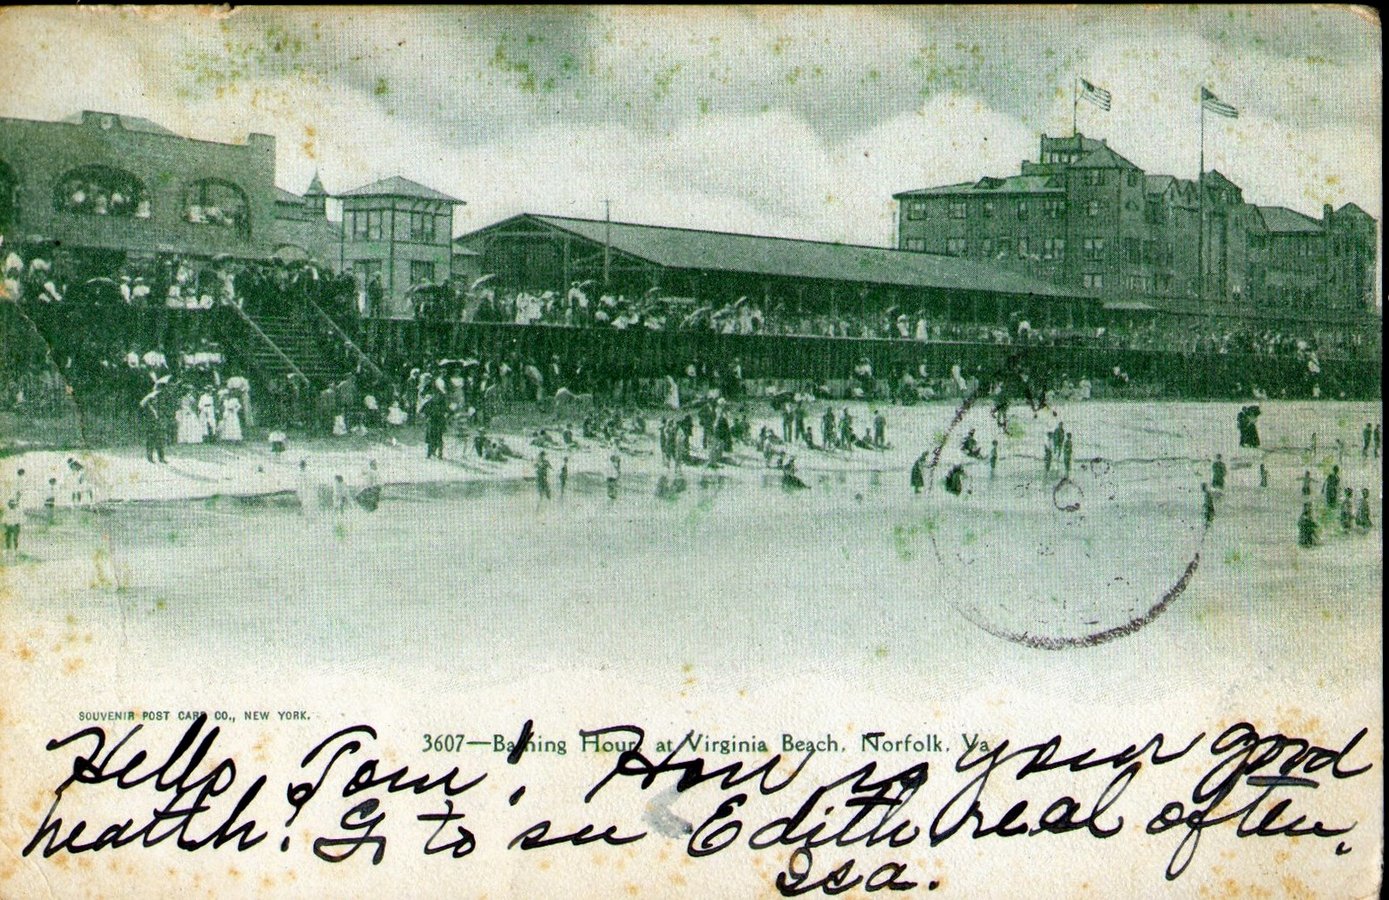 SOUVENIR POST CARD CO., NEW YORK.
3607—Bathing Hour, at Virginia Beach, Norfolk, Va.
Hello, Tom! How is your good
health? Go to see Edith real often,
Isa.